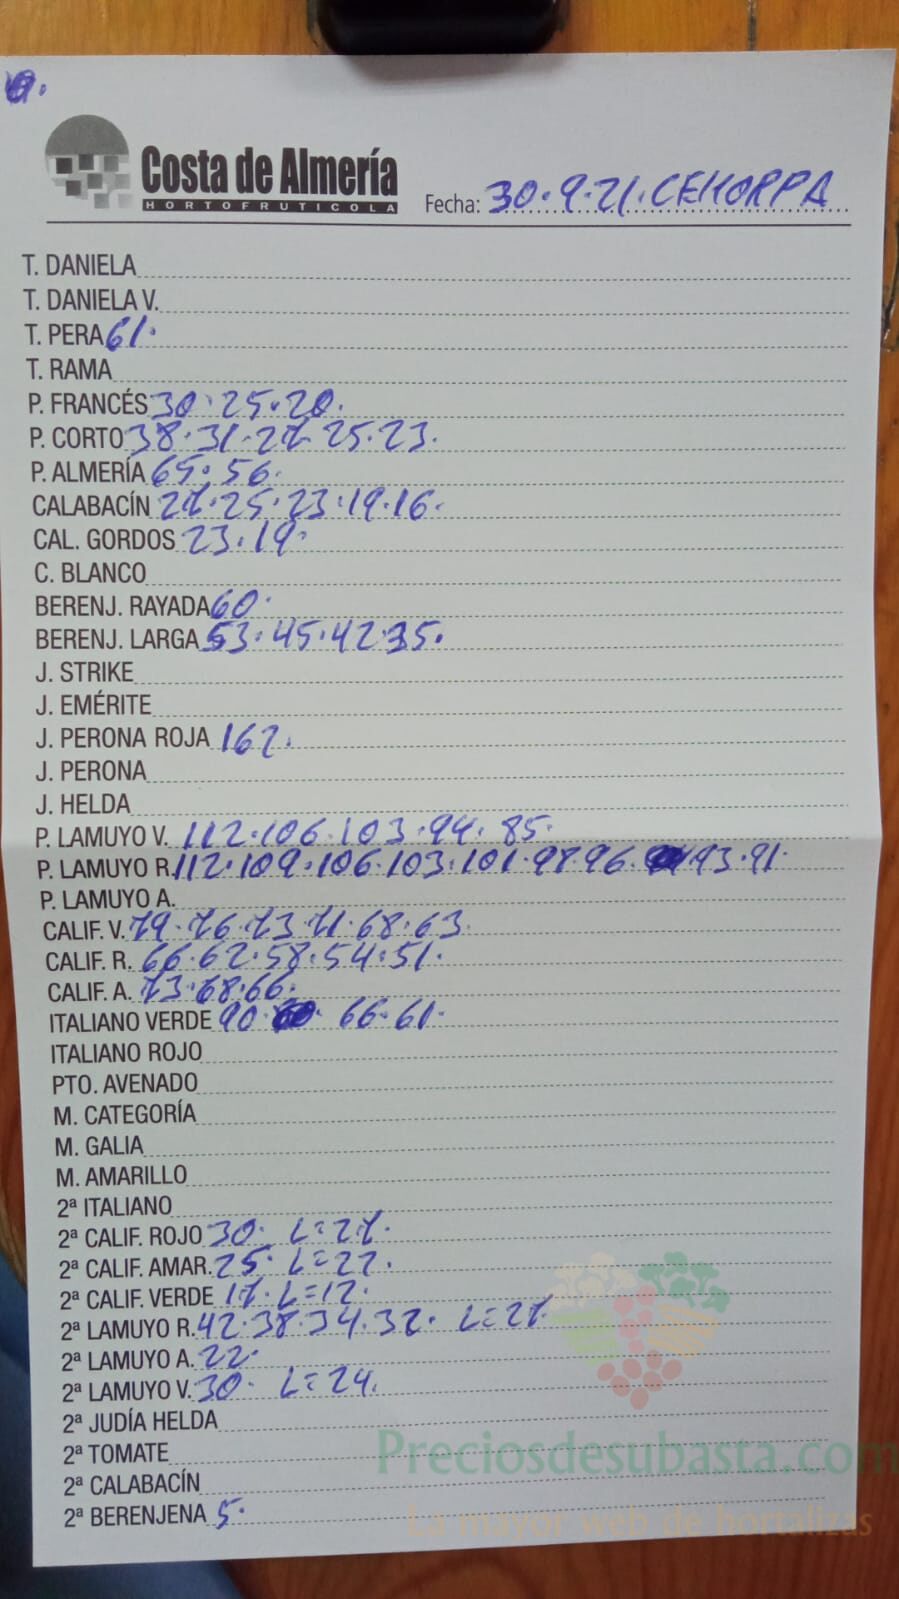 Costa de Almería
HORTOFRUTICOLA
Fecha: 30.9.21. CEHORPA
T. DANIELA
T. DANIELA V.
T. PERA 61.
T. RAMA
P. FRANCÉS 30.25.20.
P. CORTO 38.31.27.25.23.
P. ALMERÍA 65.56.
CALABACÍN 27.25.23.19.16.
CAL. GORDOS 23.19.
C. BLANCO
BERENJ. RAYADA 60.
BERENJ. LARGA 53.45.42.35.
J. STRIKE
J. EMÉRITE
J. PERONA ROJA 162.
J. PERONA
J. HELDA
P. LAMUYO V. 112.106.103.94.85.
P. LAMUYO R. 112.109.106.103.101.98.96.93.91.
P. LAMUYO A.
CALIF. V. 79.76.73.71.68.63.
CALIF. R. 66.62.58.54.51.
CALIF. A. 73.68.66.
ITALIANO VERDE 90. 66.61.
ITALIANO ROJO
PTO. AVENADO
M. CATEGORÍA
M. GALIA
M. AMARILLO
2ª ITALIANO
2ª CALIF. ROJO 30. L=27.
2ª CALIF. AMAR. 25. L=22.
2ª CALIF. VERDE 17. L=12.
2ª LAMUYO R. 42.38.34.32. L=27.
2ª LAMUYO A. 22.
2ª LAMUYO V. 30. L=24.
2ª JUDÍA HELDA
2ª TOMATE
Preciosdesubasta.com
2ª CALABACÍN
2ª BERENJENA 5.
La mayor web de hortalizas